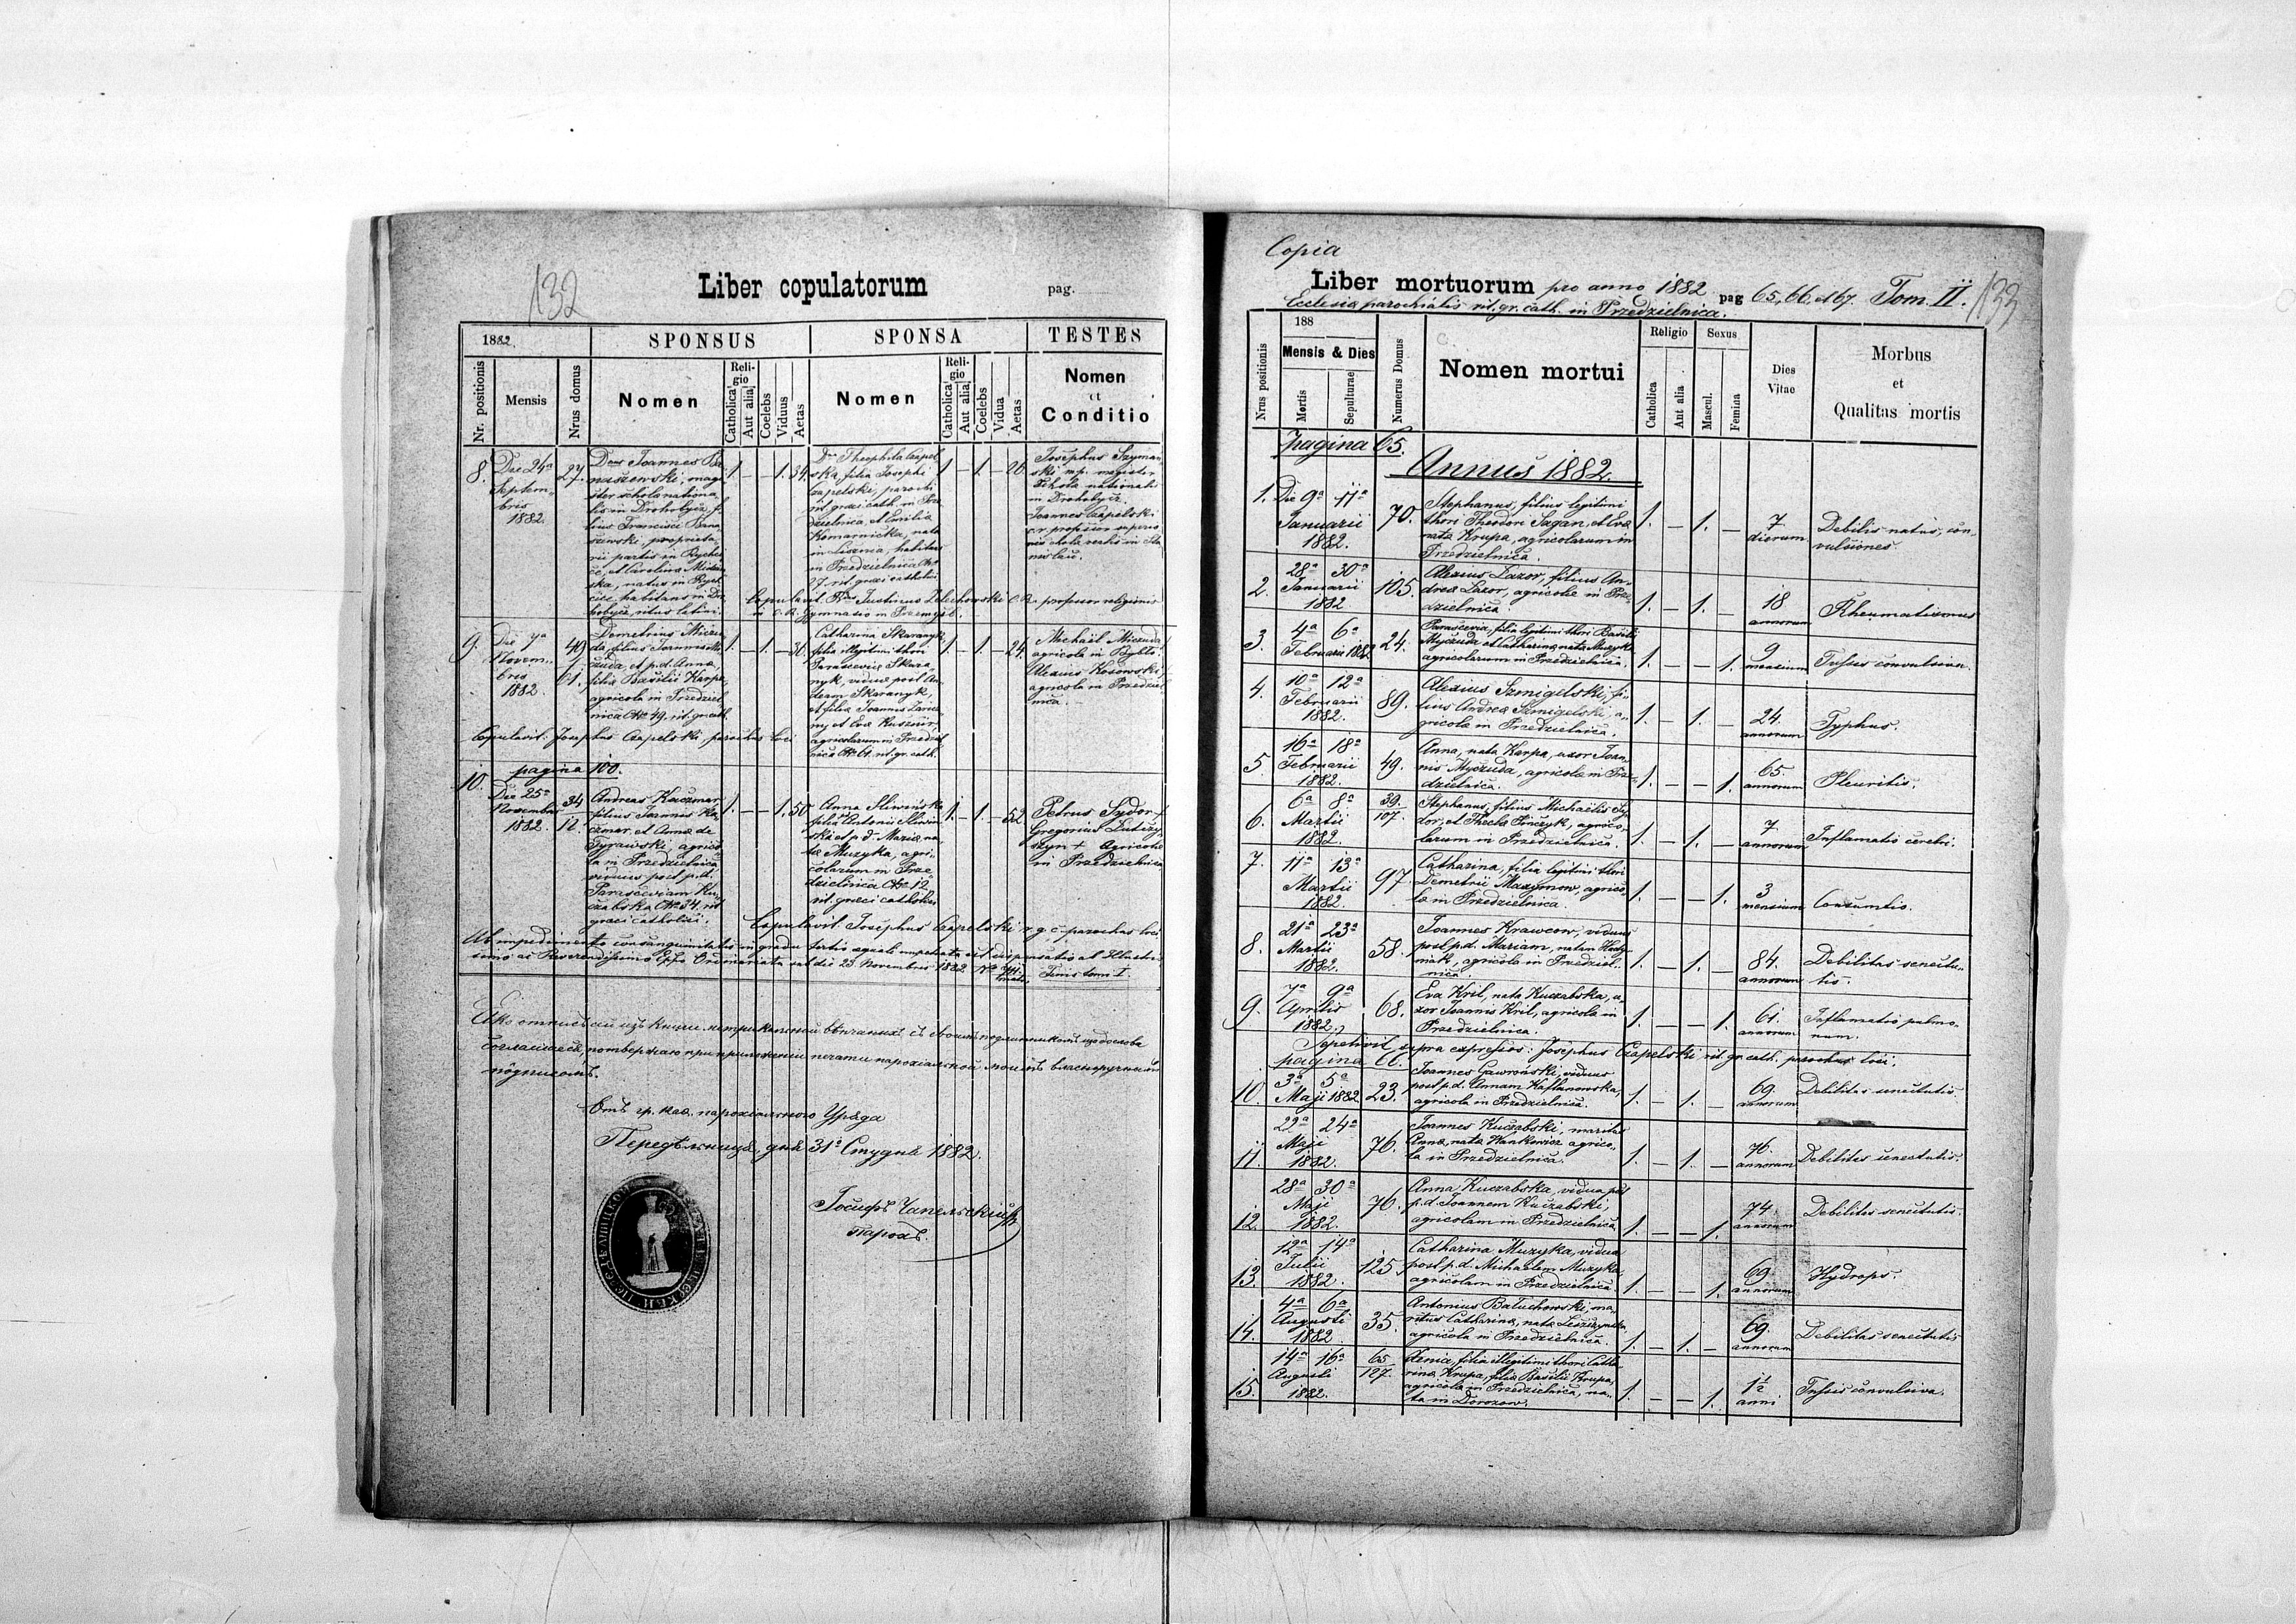 132
Liber copulatorum
pag.
1882.
SPONSUS
SPONSA
TESTES
Nr. positionis
Mensis
Nrus domus
Nomen
Religio
Catholica
Aut alia
Coelebs
Viduus
Aetas
Nomen
Religio
Catholica
Aut alia
Coelebs
Vidua
Aetas
Nomen
et
Conditio
8.
Die 24a
Septem-
bris
1882.
27.
Dnus Joannes Ba
naszewski, magi
ster scholae nationa
lis in Drohobycz, fi
lius Francisci Bana
szewski, proprieta
rii partis in Rychci
ce, et Carolina
natus in Rych
cice, habitans in Dro
hobycz, ritus latini.
1. — — 1. 34.
Dna Theophila Czapel
ska filia Josephi
Czapelski, parochi
rit. graeci cath. in Prze
dzielnica, et Emilia
Komarnicka, nata
in Lisznia, habitans
in Przedzielnica Nro
27. rit. graeci catholici
1. — 1. — 26
Josephus Szyman
ski mp. magister
scholae nationalis
in Drohobycz.
Joannes Czapelski
c.r. professor superio
ris scholae realis in Sta
nislau.
Copulavit: Rdus Justinus Zelechowski C.R. professor religionis
in C.R. Gymnasio in Przemysl.
9.
Die 7a
Novem-
bris
1882.
49
61.
Demetrius Miczu
da, filius Joannis Mi
czuda, et p.d. Anna,
filia Basilii Karpa,
agricola in Przedziel
nica Nro 49. rit. gr. cath.
1. — 1. — 30.
Catharina Skaranyk,
filia illegitimi thori
Parascevia Skara
nyk, vidua post An
dream Skaranyk,
et filia Joannis
et Eva Kusznir,
agricolarum in Przedziel
nica Nro 61. rit. gr. cath.
1. — 1. — 24.
Michael Miczuda
agricola in
Alexius Kosowski,
agricola in Przedziel
nica.
Copulavit: Josephus Czapelski parochus loci
pagina 100.
10.
Die 25a
Novembris
1882.
34
12.
Andreas Kuczmar,
filius Joannis Ku
czmar, et Anna de
Tyrawski, agrico
la in Przedzielnica
viduus post p.d.
Parasceviam Ku
czabska Nro 34. rit
graeci catholici.
1. — — 1. 50
Anna Sliwinska
filia Antonii Sliwin
ski et p.d. Maria na
ta Muzyka, agri-
colarum in Prze
dzielnica Nro 12.
rit. graeci catholici
1. — 1. — 52
Petrus Sydor +
Gregorius
+ Agricolae
in Przedzielnica
Copulavit Josephus Czapelski r.g.c. parochus loci.
Ab impedimento consanguinitatis in gradu tertio aequali impetrata est dispensatio ab Illustris
simo ac Reverendissimo Eppo Ordinariatu sub die 23 Novembris 1882
Finis tomi I.
Яко отписъ сей изъ Книги метрикальнои вѣнчаныхъ съ своимъ подлинникомъ цѣдослова
согласается, потверждаю при приложении печати парохіяльнои моимъ власноручнымъ
пôдписомъ.
Отъ гр. кат. парохіяльного Уряда
Передѣльница, дня 31го Студня 1882.
Іосифъ Чапельскій
парохъ.
Copia
Liber mortuorum pro anno 1882 pag 65, 66, et 67. Tom. II.
133
Ecclesia parochialis rit. gr. cath. in Przedzielnica.
Nrus positionis
188
Mensis & Dies
Mortis
Sepulturae
Numerus Domus
Nomen mortui
Religio
Catholica
Aut alia
Sexus
Mascul.
Femina
Dies
Vitae
Morbus
et
Qualitas mortis
pagina 65.
Annus 1882.
1. Die 9a 11a
Januarii
1882.
70.
Stephanus, filius legitimi
thori Theodori Sagan, et Eva
nata Krupa, agricolarum in
Przedzielnica.
1. — 1. —
7
dierum
Debilis natus, con-
vulsiones.
2.
28a 30a
Januarii
1882
105.
Alexius Lazor, filius An-
drea Lazor, agricolae in Prze-
dzielnica.
1. — 1. —
18
annorum
Rheumatismus
3
4a 6a
Februarii 1882
24.
Parascevia, filia legitimi thori Basilii
Myczuda et Catharina nata Muzyk
agricolarum in Przedzielnica.
1. — — 1.
9
mensium
Tussis convulsiva.
4.
10a 12a
Februarii
1882.
89.
Alexius Szmigelski, fi-
lius Andrea Szmigelski, a-
gricola in Przedzielnica.
1. — 1. —
24.
annorum
Typhus.
5
16a 18a
Februarii
1882.
49.
Anna, nata Karpa, uxor Joan-
nis Myczuda, agricola in Prze-
dzielnica.
1. — — 1.
65.
annorum
Pleuritis.
6.
6a 8a
Martii
1882.
39.
107.
Stephanus, filius Michaelis Sy
dor, et Thecla Pinczyk, agrico-
larum in Przedzielnica.
1. — 1. —
7
annorum
Inflamatio cerebri.
7.
11a 13a
Martii
1882.
97.
Catharina, filia legitimi thori
Demetrii Maxymow, agrico-
la in Przedzielnica.
1. — — 1.
3
mensium
Consumtio.
8.
21a 23a
Martii
1882.
58.
Joannes Krawcow, viduus
post p.d. Mariam, natam Hudy-
niak, agricola in Przedziel-
nica.
1. — 1. —
84.
annorum
Debilitas senectu-
tis.
9.
7a 9a
Aprilis
1882.
68.
Eva Kril, nata Kuczabska, u-
xor Joannis Kril, agricola in
Przedzielnica.
1. — — 1.
61.
annorum
Inflamatio pulmo-
num.
Sepelivit supra expressos: Josephus Czapelski rit. gr. cath. parochus loci.
pagina 66.
10.
3a 5a
Maji 1882
23.
Joannes Gawroński, viduus
post p.d. Annam Kaflanowska,
agricola in Przedzielnica.
1. — 1. —
69.
annorum
Debilitas senectutis
11.
22a 24a
Maji
1882.
76.
Joannes Kuczabski, maritus
Anna, nata Wankowicz agrico-
la in Przedzielnica.
1. — 1. —
76.
annorum
Debilitas senectutis.
12.
28a 30a
Maji
1882.
76.
Anna Kuczabska, vidua post
p.d. Joannem Kuczabski,
agricolam in Przedzielnica.
1. — — 1.
74.
annorum
Debilitas senectutis.
13.
12a 14a
Julii
1882.
125.
Catharina Muzyka, vidua
post p.d. Michaelem Muzyka
agricolam in Przedzielnica.
1. — — 1.
69
annorum
Hydrops.
14.
4a 6a
Augusti
1882.
35.
Antonius Batuchowski, ma-
ritus Catharina, nata Leszczynska
agricola in Przedzielnica.
1. — 1. —
69.
annorum
Debilitas senectutis
15.
14a 16a
Augusti
1882.
65
127.
Xenia, filia illegitimi thori Catha-
rina Krupa, filia Basilii Krupa,
agricola in Przedzielnica, na-
ta in Dorozow.
1. — — 1.
1½
anni
Tussis convulsiva.